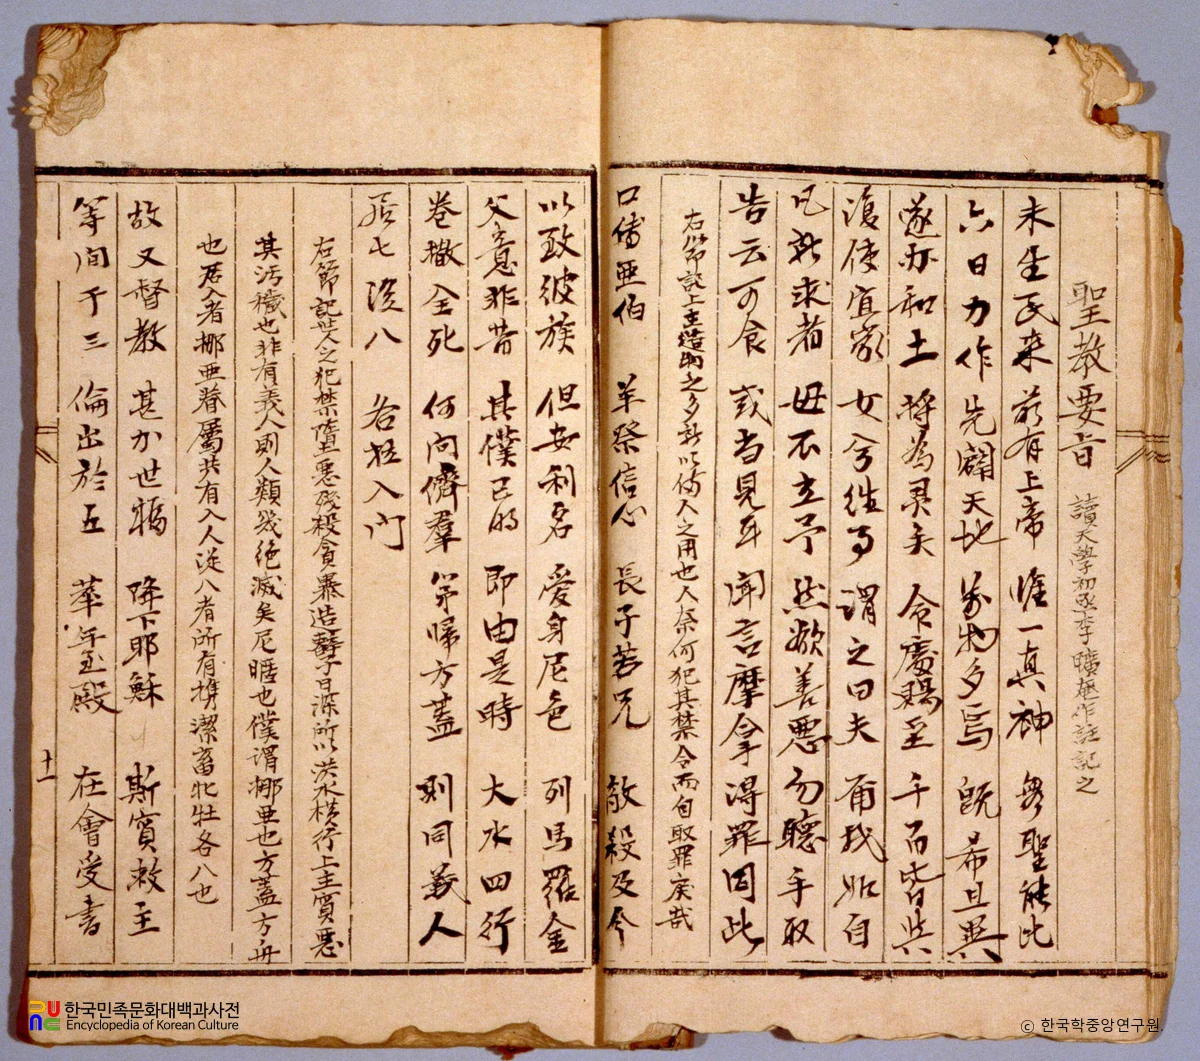 聖教要旨 讀天學初函李曠菴作註記之
未生民來 前有上帝 惟一真神 無聖能比
六日力作 先闢天地 萬物多焉 旣希且異
遂亦和土 將為靈矣 命處賜至 千百皆與
復使宜家 女兮往
謂之曰夫 爾我如自
凡所求者 毋不立予 然敬善惡 勿聽手取
告云可食 或当見耳 聞言摩拿 得罪因此
右節記上主造物之多所以備人之用也人奈何犯其禁令而自取罪戾哉
口傳亞伯 羊祭信心 長子若兄 敢殺及今
以致彼族 但安利名 愛身尼色 列馬羅金
父意非昔 其僕已的 即由是時 大水四行
卷撒全死 何問儕羣 第歸方蓋 則同義人
後八 各 入門
右節記世人之犯禁墮惡殘殺貪暴造孼子日深所以洪水橫行上主實惡
其汚穢也非有義人則人類幾絶滅矣尼暱也僕謂挪亜也方蓋方舟
也居入者挪亜眷屬共有八人從八者所有携潔畜牝牡各八也
故又督敎 甚加世禍 降下耶穌 斯實救主
等間于三 倫出於五
在會受書
十一
한국민족문화대백과사전
Encyclopedia of Korean Culture
ⓒ 한국학중앙연구원